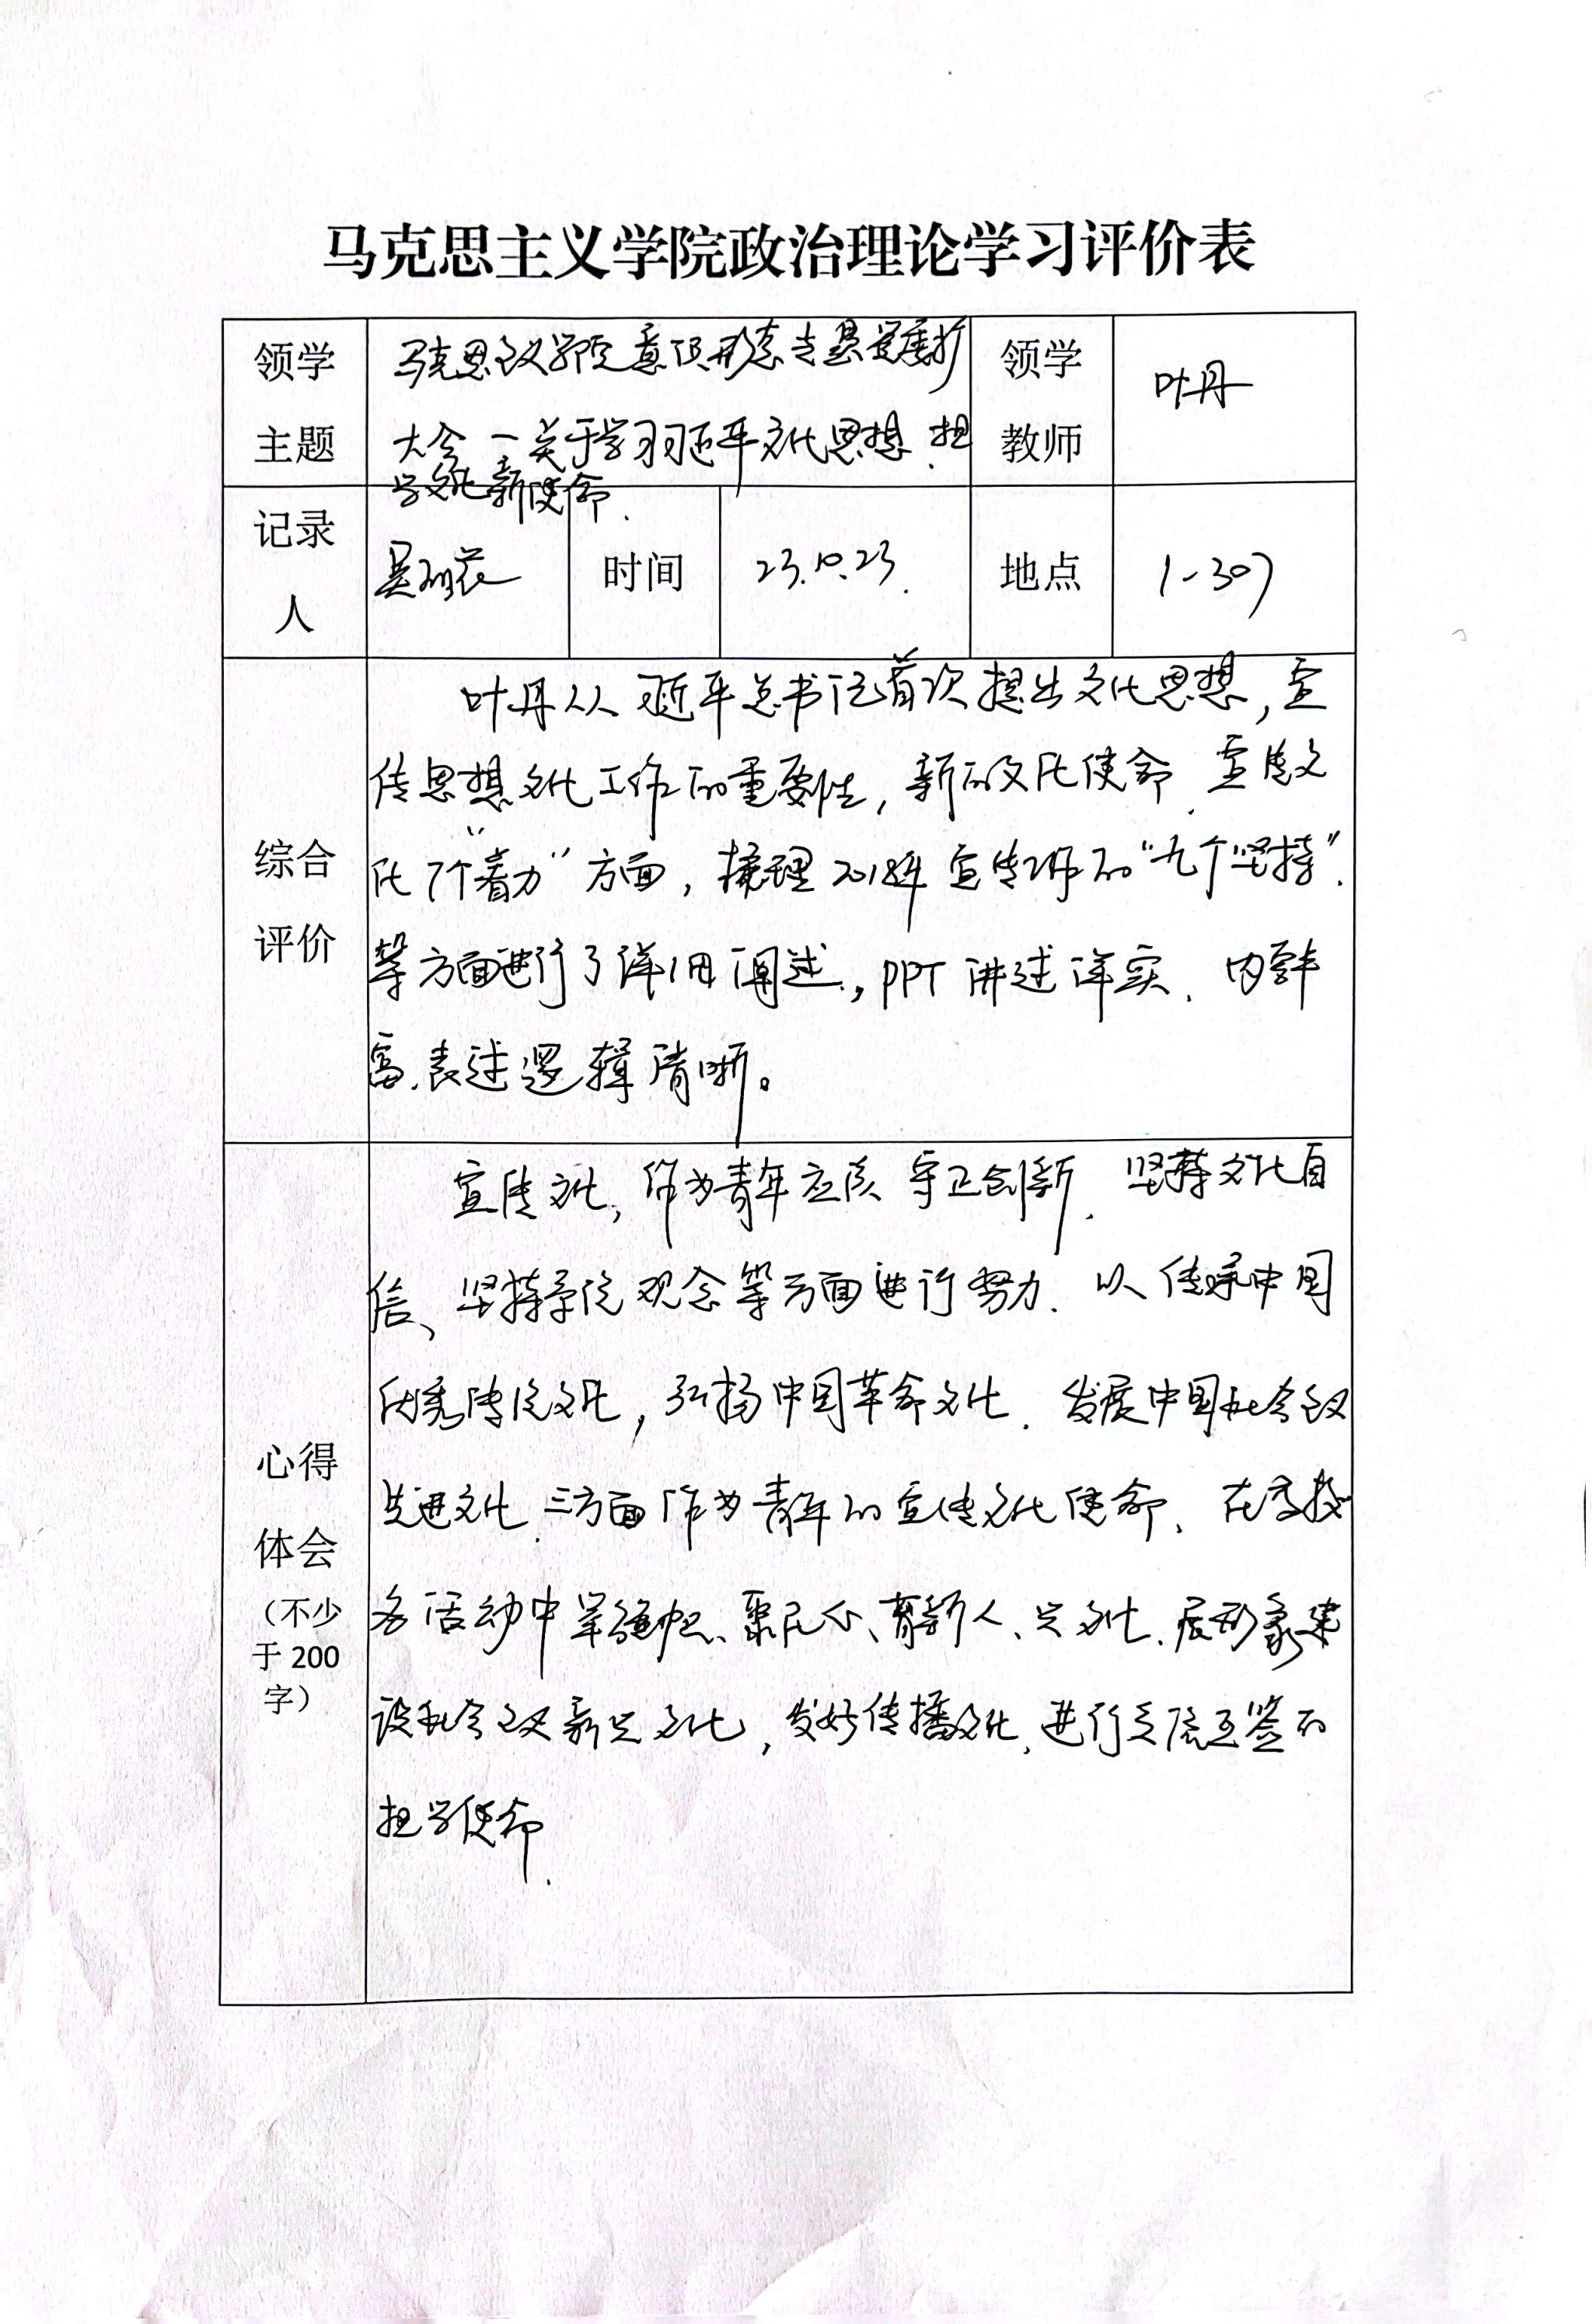 马克思主义学院政治理论学习评价表
领学主题
马克思主义学院意识形态专题
大会—关于学习习近平文化思想、担
当文化新使命.
领学教师
叶丹
记录人
吴
时间
23.10.23.
地点
1-307
综合评价
叶丹从习近平总书记首次提出文化思想,宣
传思想文化工作的重要性,新的文化使命、宣传文
化7个“着力”方面,梳理2018年宣传工作的“九个坚持”.
等方面进行了详细阐述.,PPT讲述详实、内容丰
富、表述逻辑清晰。
心得体会(不少于200字)
宣传文化,作为青年应该守正创新、坚持文化自
信、坚持系统观念等方面进行努力.以传承中国
优秀传统文化,弘扬中国革命文化、发展中国社会主义
先进文化.三方面作为青年的宣传文化使命、在高校
各活动中举旗帜、聚民心、育新人、兴文化、展形象建
设社会主义新兴文化,发好传播文化,进行交流互鉴的
担当使命.